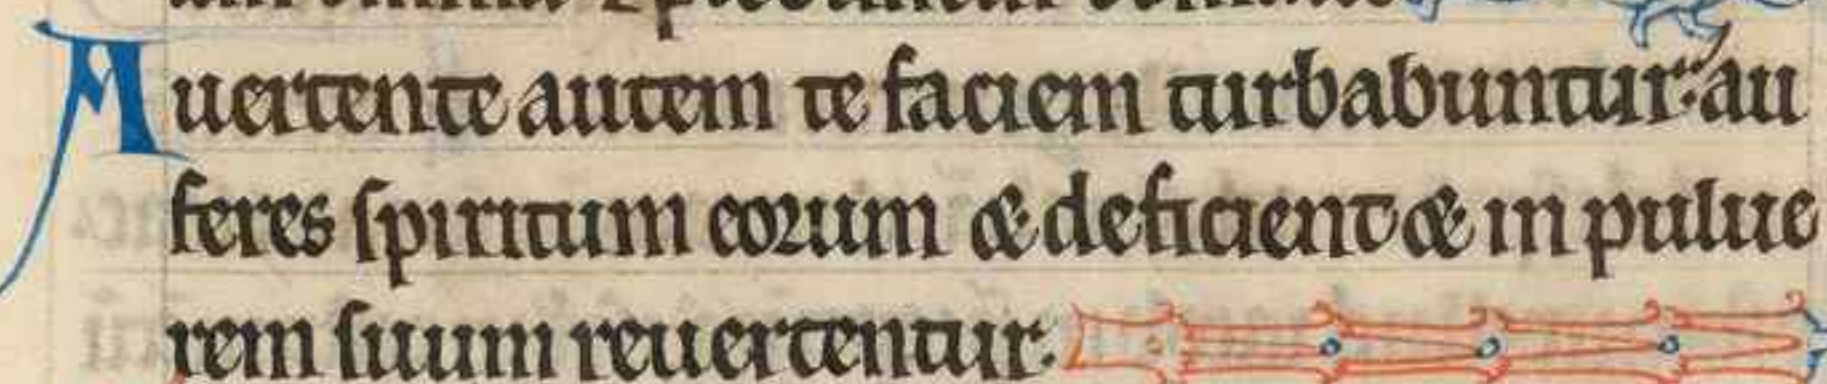 Auertente autem te faciem turbabuntur: au
feres spiritum eorum & deficient & in pulue
rem suum reuertentur: